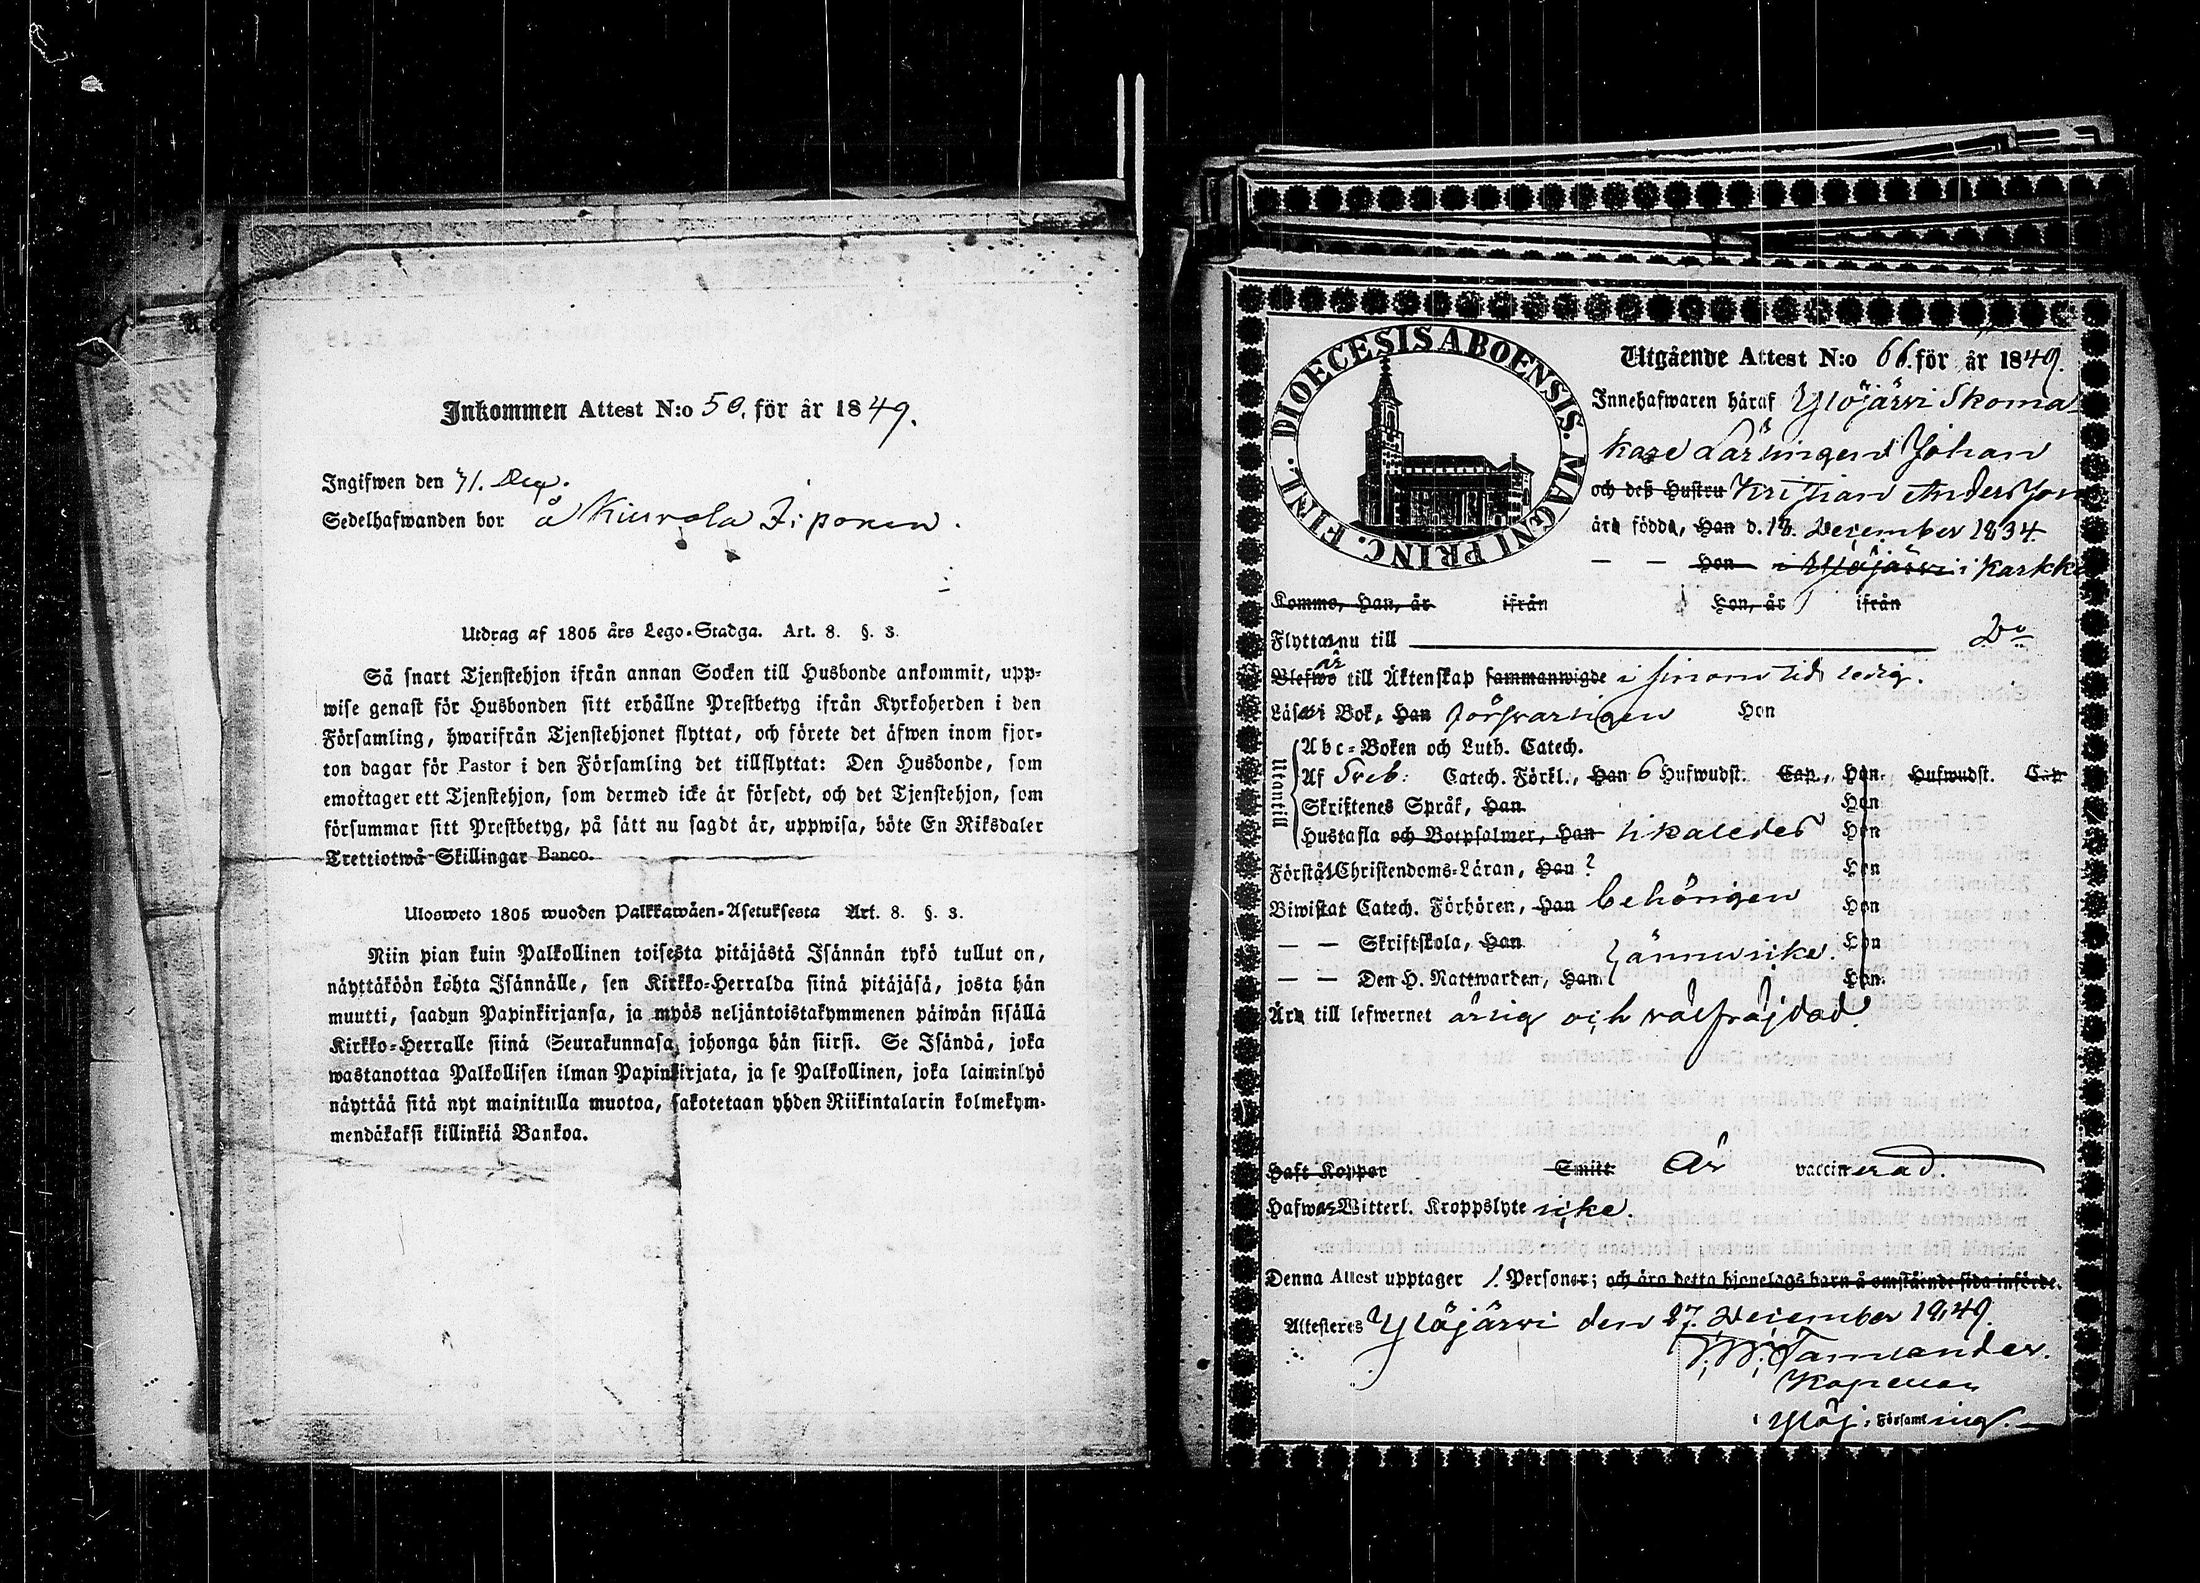 Inkommen Attest N:o 50. för år 1849.
Ingifwen den 31. Dec.
Sedelhafwanden bor å
Utdrag af 1805 års Lego-Stadga. Art. 8. §. 3.
Så snart Tjenstehjon ifrån annan Socken till Husbonde ankommit, upp-
wise genast för Husbonden sitt erhållne Prestbetyg ifrån Kyrkoherden i den
Församling, hwarifrån Tjenstehjonet flyttat, och förete det äfwen inom fjor-
ton dagar för Pastor i den Församling det tillflyttat: Den Husbonde, som
emottager ett Tjenstehjon, som dermed icke är försedt, och det Tjenstehjon, som
försummar sitt Prestbetyg, på sätt nu sagdt är, uppwisa, böte En Riksdaler
Trettiotwå Skillingar Banco.
Ulosweto 1805 wuoden Palkkawäen-Asetuksesta Art. 8. §. 3.
Niin pian kuin Palkollinen toisesta pitäjästä Isännän tykö tullut on,
näyttäköön kohta Isännälle, sen Kirkko-Herralda siinä pitäjäsä, josta hän
muutti, saadun Papinkirjansa, ja myös neljäntoistakymmenen päiwän sisällä
Kirkko-Herralle siinä Seurakunnasa, johonga hän siirsi. Se Isändä, joka
wastanottaa Palkollisen ilman Papinkirjata, ja se Palkollinen, joka laiminlyö
näyttää sitä nyt mainitulla muotoa, sakotetaan yhden Riikintalarin kolmekym-
mendäkaksi killinkiä Bankoa.
DIOECESIS ABOENSIS. MAGNI PRINC. FINL.
Utgående Attest N:o 66. för år 1849.
Innehafwaren häraf Ylöjärvi Skoma-
kare Lärlingen Johan
och deß Hustru Kristian Andersson
äro födde, Han d. December 1834
— — Hon i Ylöjärvi i Karkku
Komme, Han, år ifrån Hon, år ifrån
Flyttar nu till Do
Blefwo är till Äktenskap sammanwigde i sinom tid ledig.
Läser i Bok, Han försvarligen Hon
Utantill
Abc-Boken och Luth. Catech.
Af Sveb: Catech. Förkl., Han 6 Hufwudst. Cap., Hon Hufwudst. Cap
Skriftenes Språk, Han Hon
Hustafla och Botpsalmer, Han likaledes Hon
Förstår Christendoms-Läran, Han ? Hon
Biwistat Catech. Förhören, Han behörigen Hon
— — Skriftskola, Han Hon
— — Den H. Nattwarden, Han ännu icke. Hon
Äro till lefwernet ärlig och välfräjdad.
Haft Koppor Smitt. Är vaccinerad.
Hafwer Witterl. Kroppslyte icke.
Denna Attest upptager 1. Personer; och äro detta hjonelags barn å omstående sida införde.
Attesteres Ylöjärvi den 27. December 1849.
Kapellan
i Ylöj: Församling.